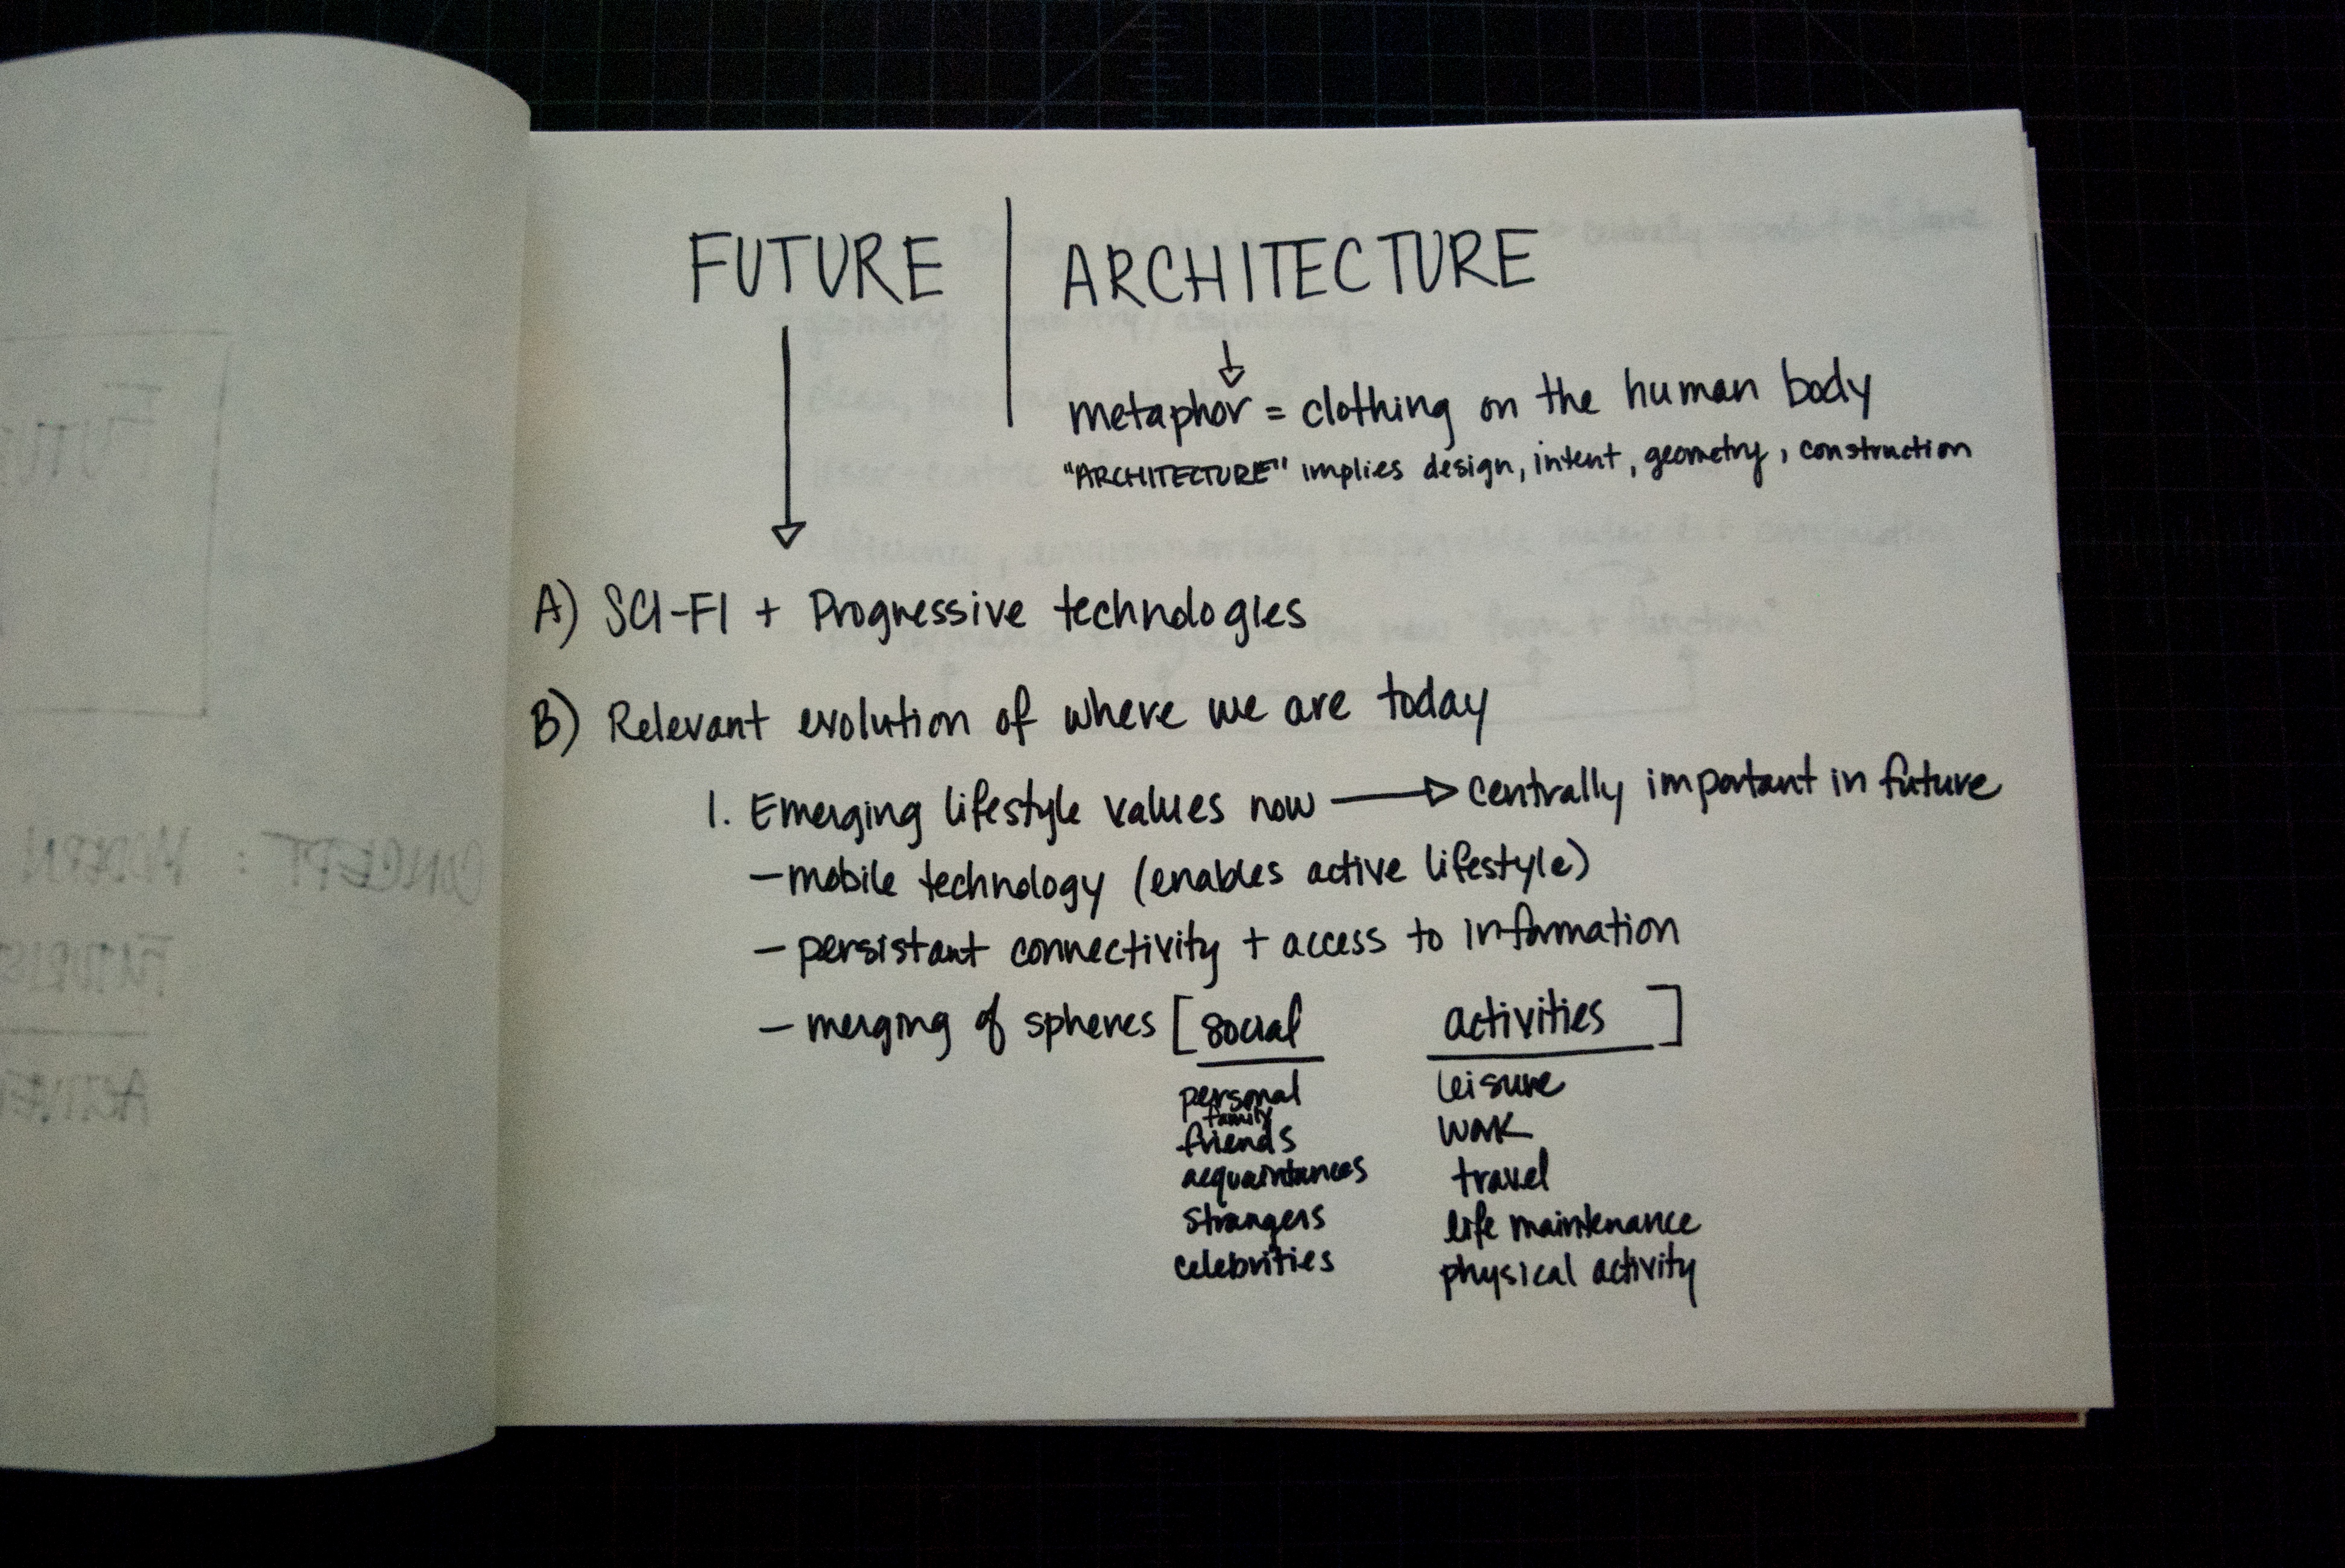 FUTURE | ARCHITECTURE
metaphor = clothing on the human body
"ARCHITECTURE" implies design, intent, geometry, construction
A) SCI-FI + Progressive technologies
B) Relevant evolution of where we are today
1. Emerging lifestyle values now → centrally important in future
- mobile technology (enables active lifestyle)
- persistant connectivity + access to information
- merging of spheres [social activities]
personal
family
friends
acquaintances
strangers
celebrities
leisure
work
travel
life maintenance
physical activity
CONCEPT: MODERN